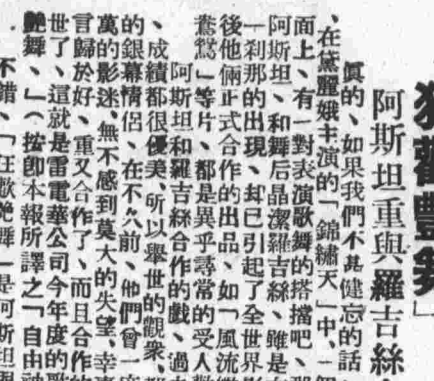 狂歡豔舞」
阿斯坦重與羅吉絲
真的、如果我們不甚健忘的話
、在黛麗娥主演的「錦繡天」中、一個
面上、有一對表演歌舞的搭擋吧、那
阿斯坦、和舞后晶潔羅吉絲、雖是
一刹那的出現、却已引起了全世界影
後他倆正式合作的出品、如「風流
鴛鴦」等片、都是異乎尋常的受人歡
阿斯坦和羅吉絲合作的戲、過
、成績都很優美、所以舉世的觀衆、都
的銀幕情侶、在不久前、他們曾一度
萬的影迷、無不感到莫大的失望、幸
言歸於好、重又合作了、而且合作的
世了、這就是雷電華公司今年度的歌
豔舞、」（按卽本報所譯之「自由神
不錯、「狂歡艷舞」是阿斯坦